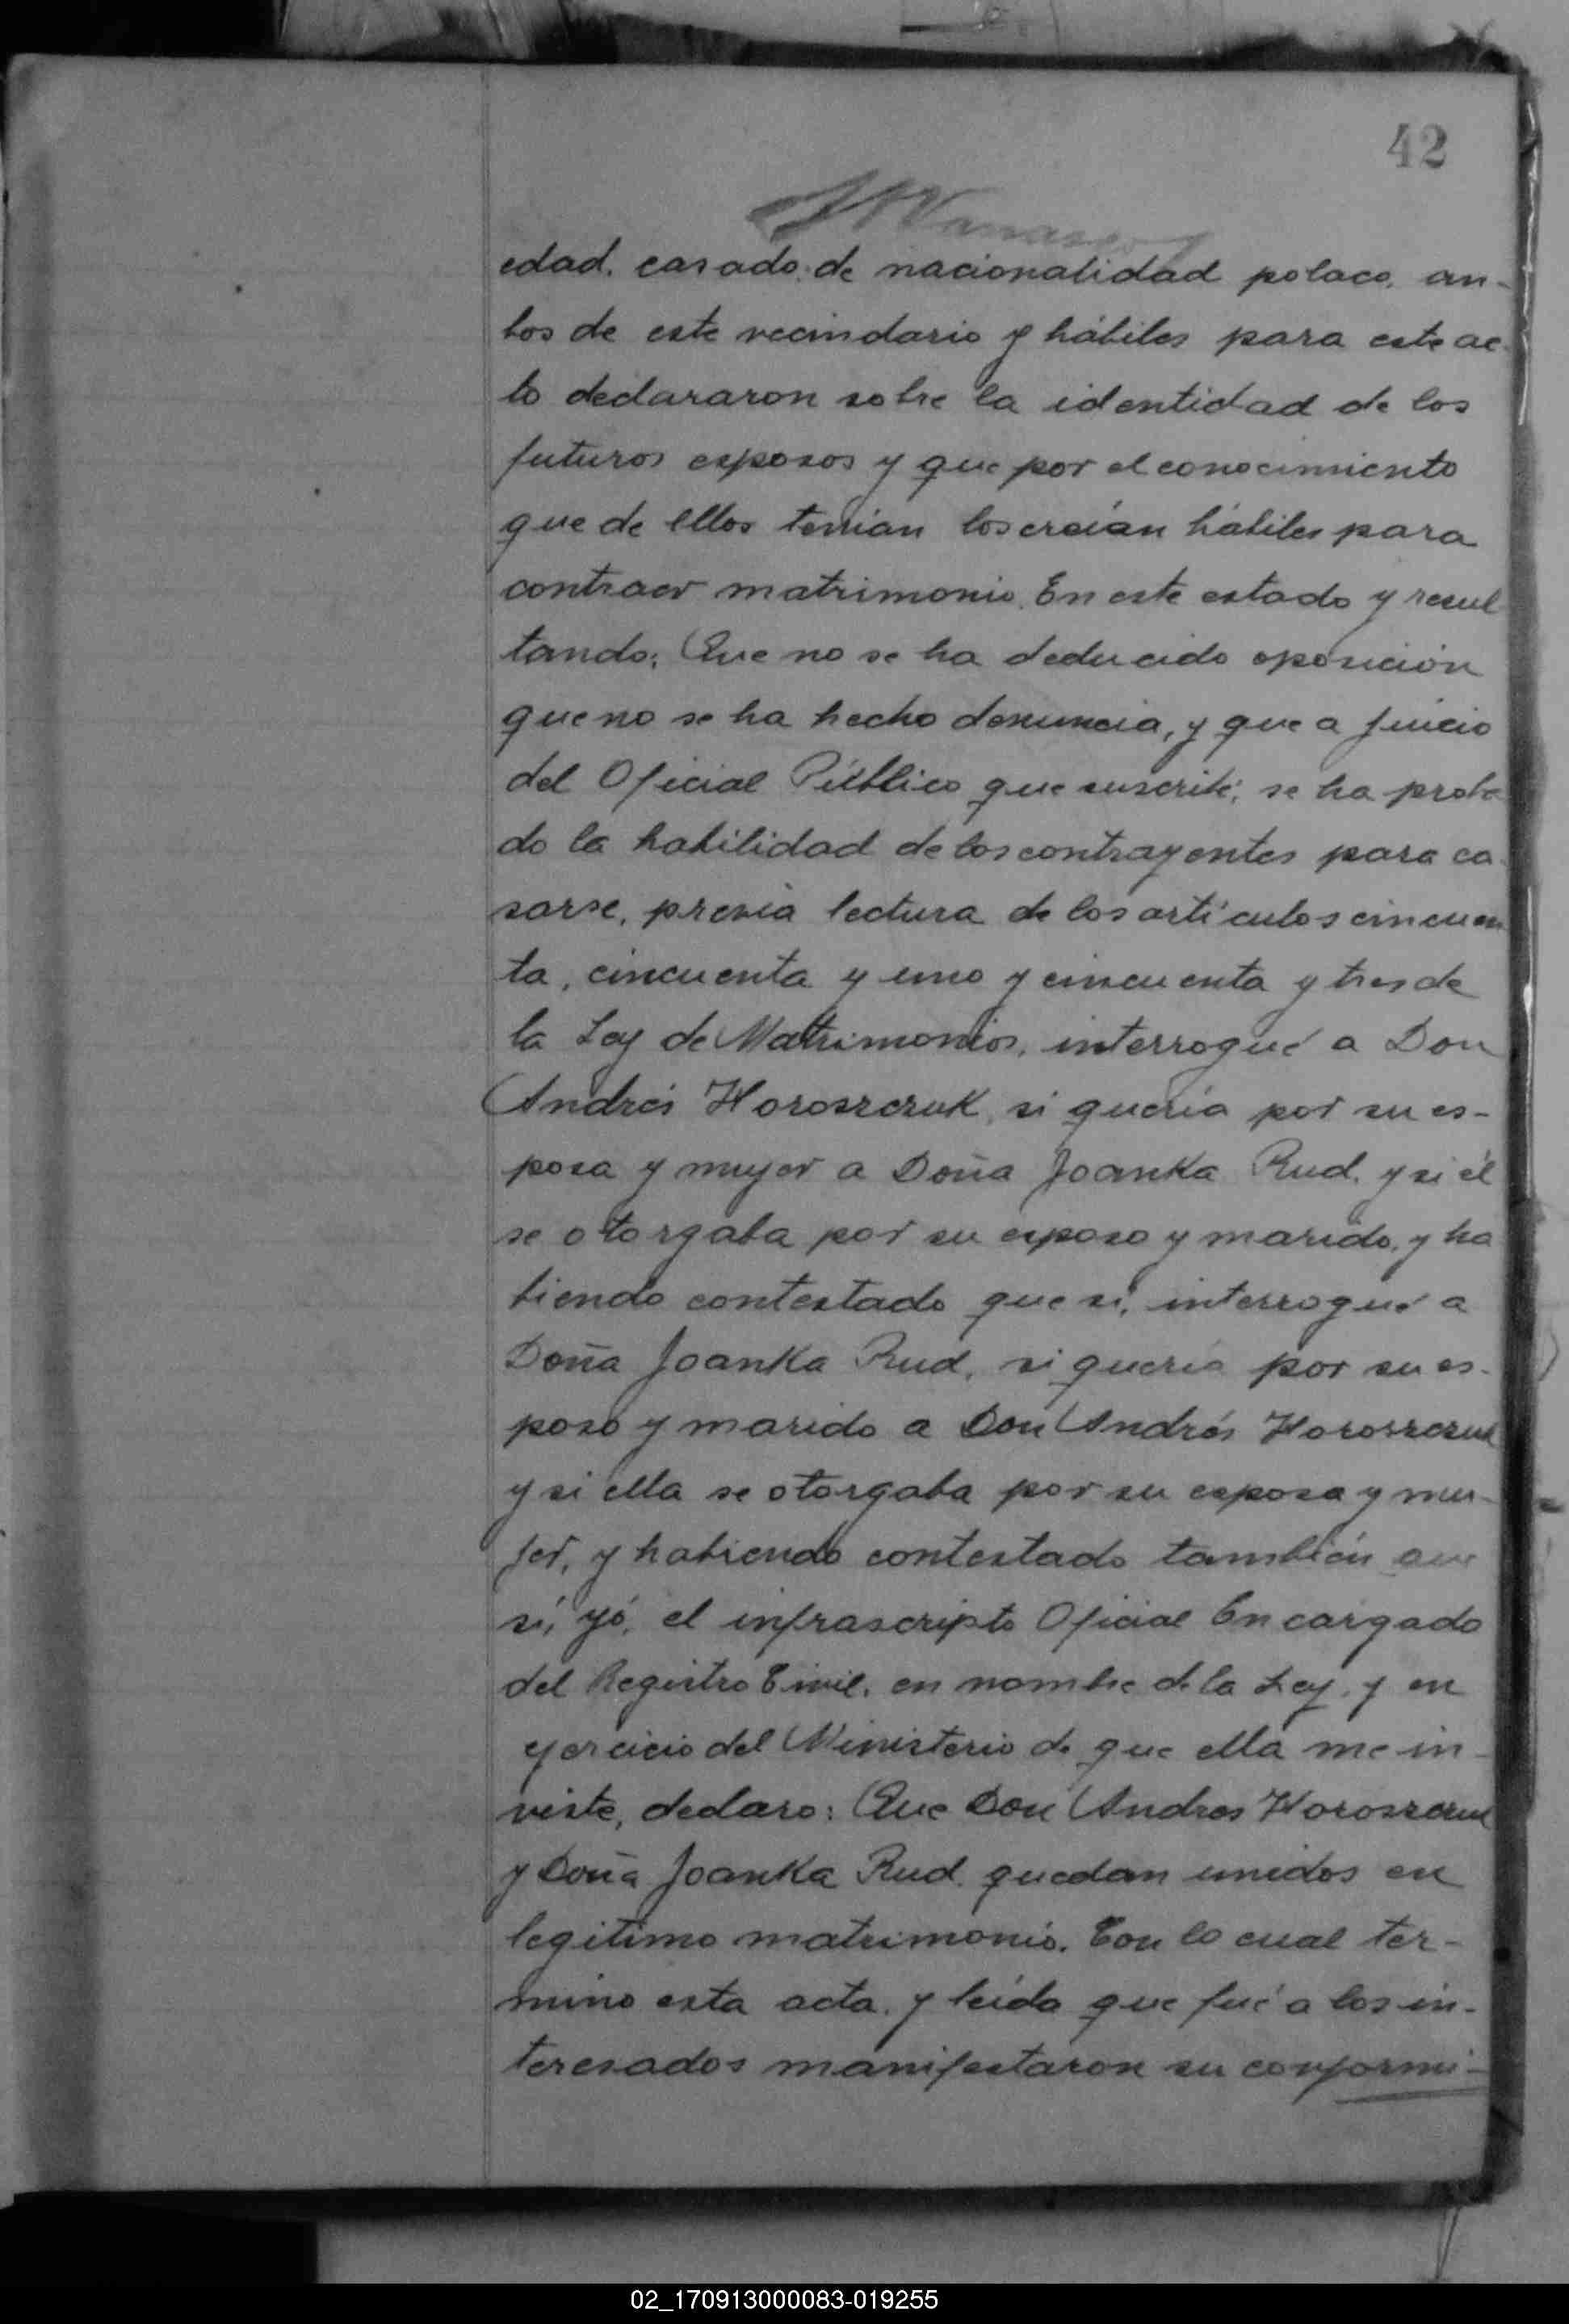 42
edad, casado, de nacionalidad polaco, am-
bos de este vecindario y hábiles para este ac-
to declararon sobre la identidad de los
futuros esposos y que por el conocimiento
que de ellos tenían los creían hábiles para
contraer matrimonio. En este estado y resul
tando: Que no se ha deducido oposición
que no se ha hecho denuncia, y que a juicio
del Oficial Público que suscribe, se ha proba
do la habilidad de los contrayentes para ca-
sarse, previa lectura de los artículos cincuen
ta, cincuenta y uno y cincuenta y tres de
la Ley de Matrimonios, interrogué a Don
Andrés Horoszczuk, si quería por su es-
posa y mujer a Doña Joanka Rud, y si él
se otorgaba por su esposo y marido, y ha
biendo contestado que sí, interrogué a
Doña Joanka Rud, si quería por su es-
poso y marido a Don Andrés Horoszczuk
y si ella se otorgaba por su esposa y mu-
jer, y habiendo contestado también que
sí, yó, el infrascripto Oficial Encargado
del Registro Civil, en nombre de la Ley, y en
ejercicio del Ministerio de que ella me in-
viste, declaro: Que Don Andres Horoszczuk
y Doña Joanka Rud, quedan unidos en
legitimo matrimonio. Con lo cual ter-
mino esta acta, y leída que fué a los in-
teresados manifestaron su conformi-
02_170913000083-019255